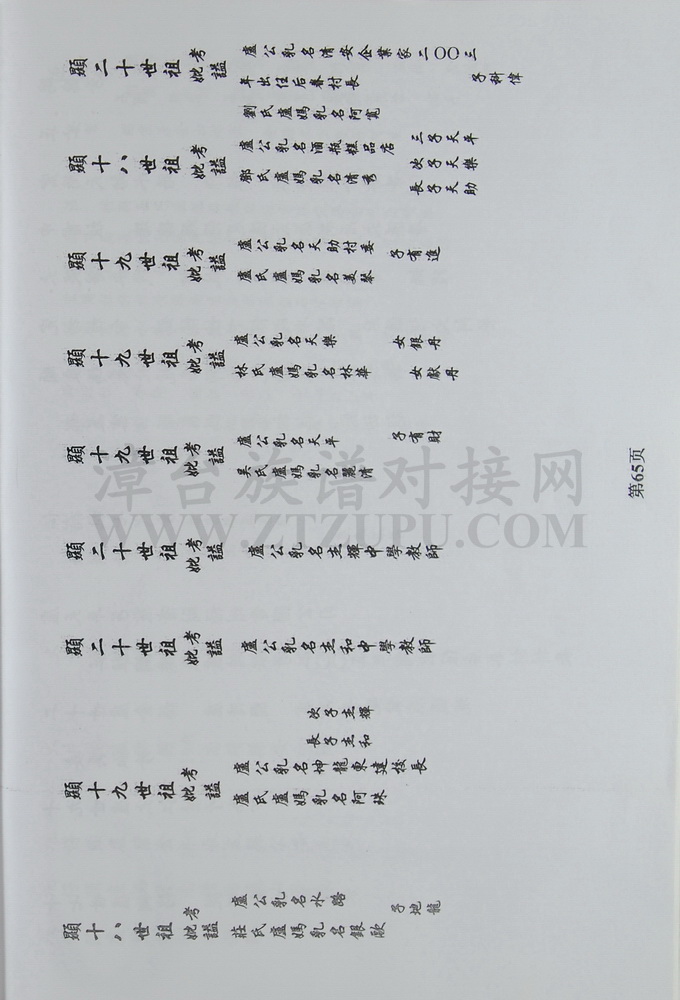 顯二十世祖考妣謚
盧公乳名清安企業家二〇〇三
年出任后眷村長
子科偉
劉氏盧媽乳名阿寬
顯十八世祖考妣謚
盧公乳名酒瓶雜品店
鄭氏盧媽乳名清秀
三子天平
次子天樂
長子天助
顯十九世祖考妣謚
盧公乳名天助村委
盧氏盧媽乳名美琴
子有進
顯十九世祖考妣謚
盧公乳名天樂
林氏盧媽乳名林華
女銀丹
女獻丹
顯十九世祖考妣謚
盧公乳名天平
吴氏盧媽乳名麗清
子有財
顯二十世祖考妣謚
盧公乳名志輝中學教師
顯二十世祖考妣謚
盧公乳名志和中學教師
次子志輝
長子志和
顯十九世祖考妣謚
盧公乳名坤龍東建校長
盧氏盧媽乳名阿珠
顯十八世祖考妣謚
盧公乳名水路
莊氏盧媽乳名銀
子地龍
第65页
漳台族谱对接网
WWW.ZTZUPU.COM